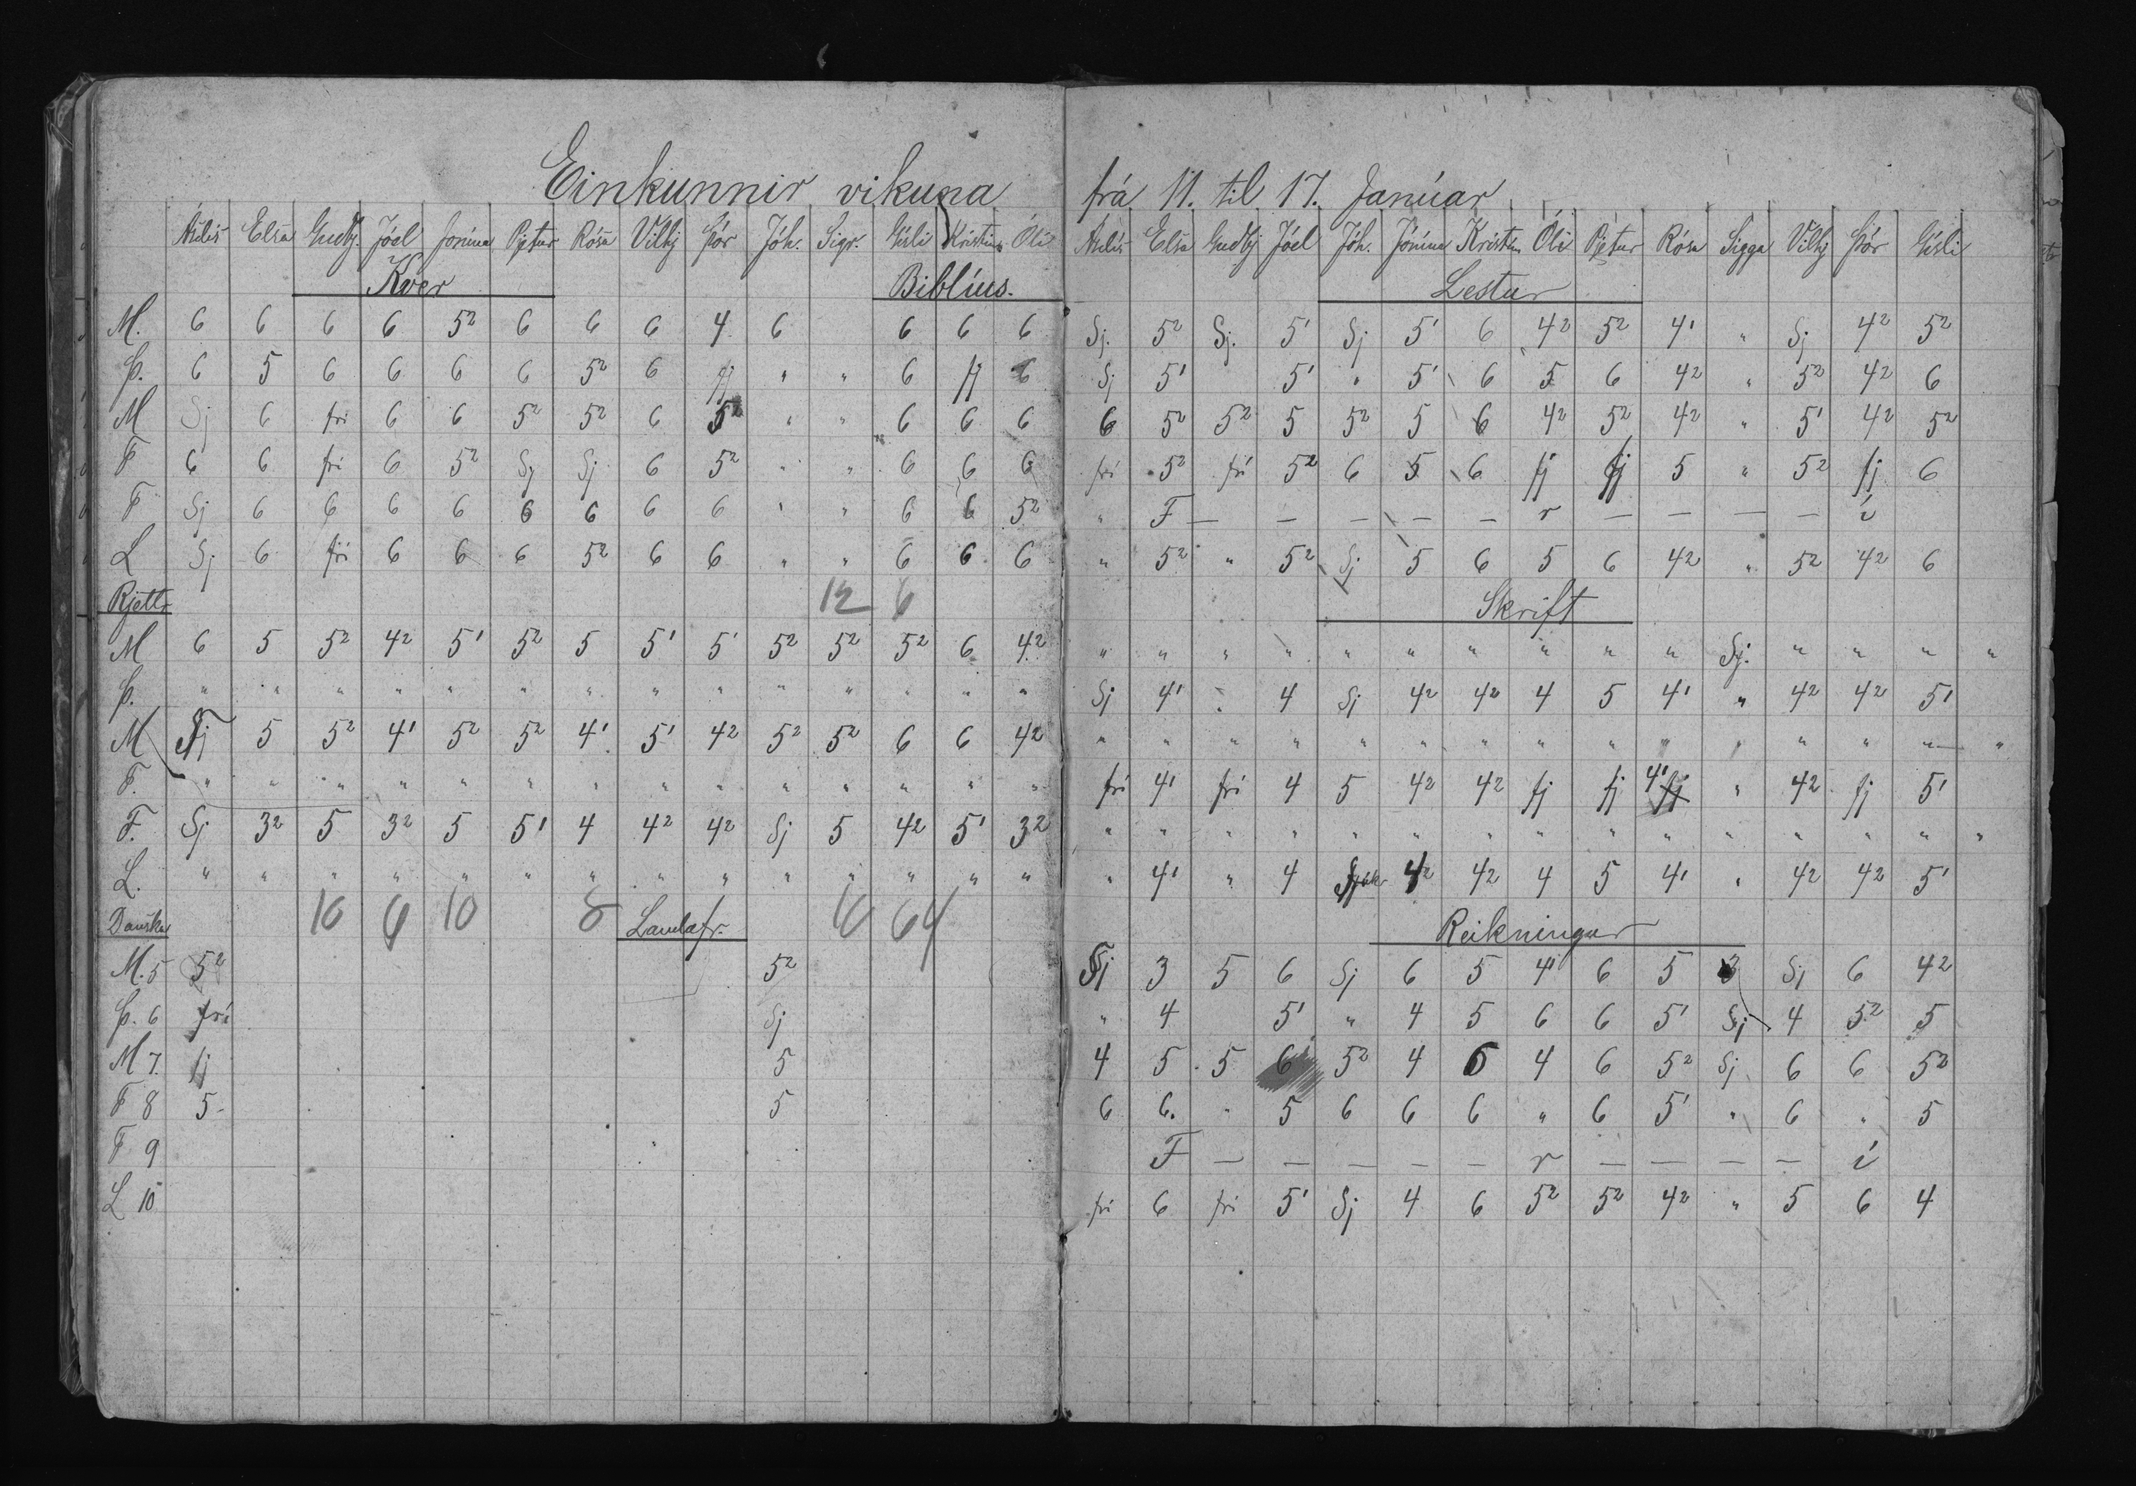 Einkunnir vikuna
Ásdís Elsa Guðbj. Jóel Jónína Pjetur Rósa Vilhj Þór Jóh. Sigr. Gísli Kristín Óli
Kver Biblíus.
M. 6 6 6 6 5² 6 6 6 4 6 6 6 6
Þ. 6 5 6 6 6 6 5² 6 fj " " 6 fj 6
M Sj 6 frí 6 6 5² 5² 6 5² " " 6 6 6
F 6 6 frí 6 5² Sj Sj 6 5² " " 6 6 6
F Sj 6 6 6 6 6 6 6 6 " " 6 6 5²
L Sj 6 frí 6 6 6 5² 6 6 " " 6 6 6
Rjettr 12 6
M 6 5 5² 4² 5' 5² 5 5' 5' 5² 5² 5² 6 4²
Þ. " " " " " " " " " " " " " "
M Sj 5 5² 4' 5² 5² 4' 5' 4² 5² 5² 6 6 4²
F. " " " " " " " " " " " " " "
F. Sj 3² 5 3² 5 5' 4 4² 4² Sj 5 4² 5' 3²
L. " " " " " " " " " " " " " "
Danska 10 6 10 8 Landafr. 64
M. 5 5² 5²
Þ. 6 frí Sj
M 7. fj 5
F 8 5 5
F 9
L 10
frá 11. til 17. Janúar
Ásdís Elsa Guðbj Jóel Jóh. Jónína Kristín Óli Pjetur Rósa Sigga Vilhj Þór Gísli
Lestur
Sj. 5² Sj. 5' Sj 5' 6 4² 5² 4' " Sj 4² 5²
Sj 5' 5' " 5' 6 5 6 4² " 5² 4² 6
6 5² 5² 5 5² 5 6 4² 5² 4² " 5' 4² 5²
frí 5² frí 5² 6 5 6 fj fj 5 " 5² fj 6
" F — — — — — r — — — — í
" 5² " 5² Sj 5 6 5 6 4² " 5² 4² 6
Skrift
" " " " " " " " " " Sj. " " " "
Sj 4' " 4 Sj 4² 4² 4 5 4' " 4² 4² 5'
" " " " " " " " " " " " " " "
frí 4' frí 4 5 4² 4² fj fj 4' fj " 4² fj 5'
" " " " " " " " " " " " " " "
" 4' " 4 4² 4² 4 5 4' " 4² 4² 5'
Reikningur
Sj 3 5 6 Sj 6 5 4' 6 5 Sj 6 4²
" 4 5' " 4 5 6 6 5' Sj 4 5² 5
4 5 5 6 5² 4 6 4 6 5² Sj 6 6 5²
6 6. " 5 6 6 6 " 6 5' " 6 " 5
F — — — — — r — — — — í
frí 6 frí 5' Sj 4 6 5² 5² 4² " 5 6 4